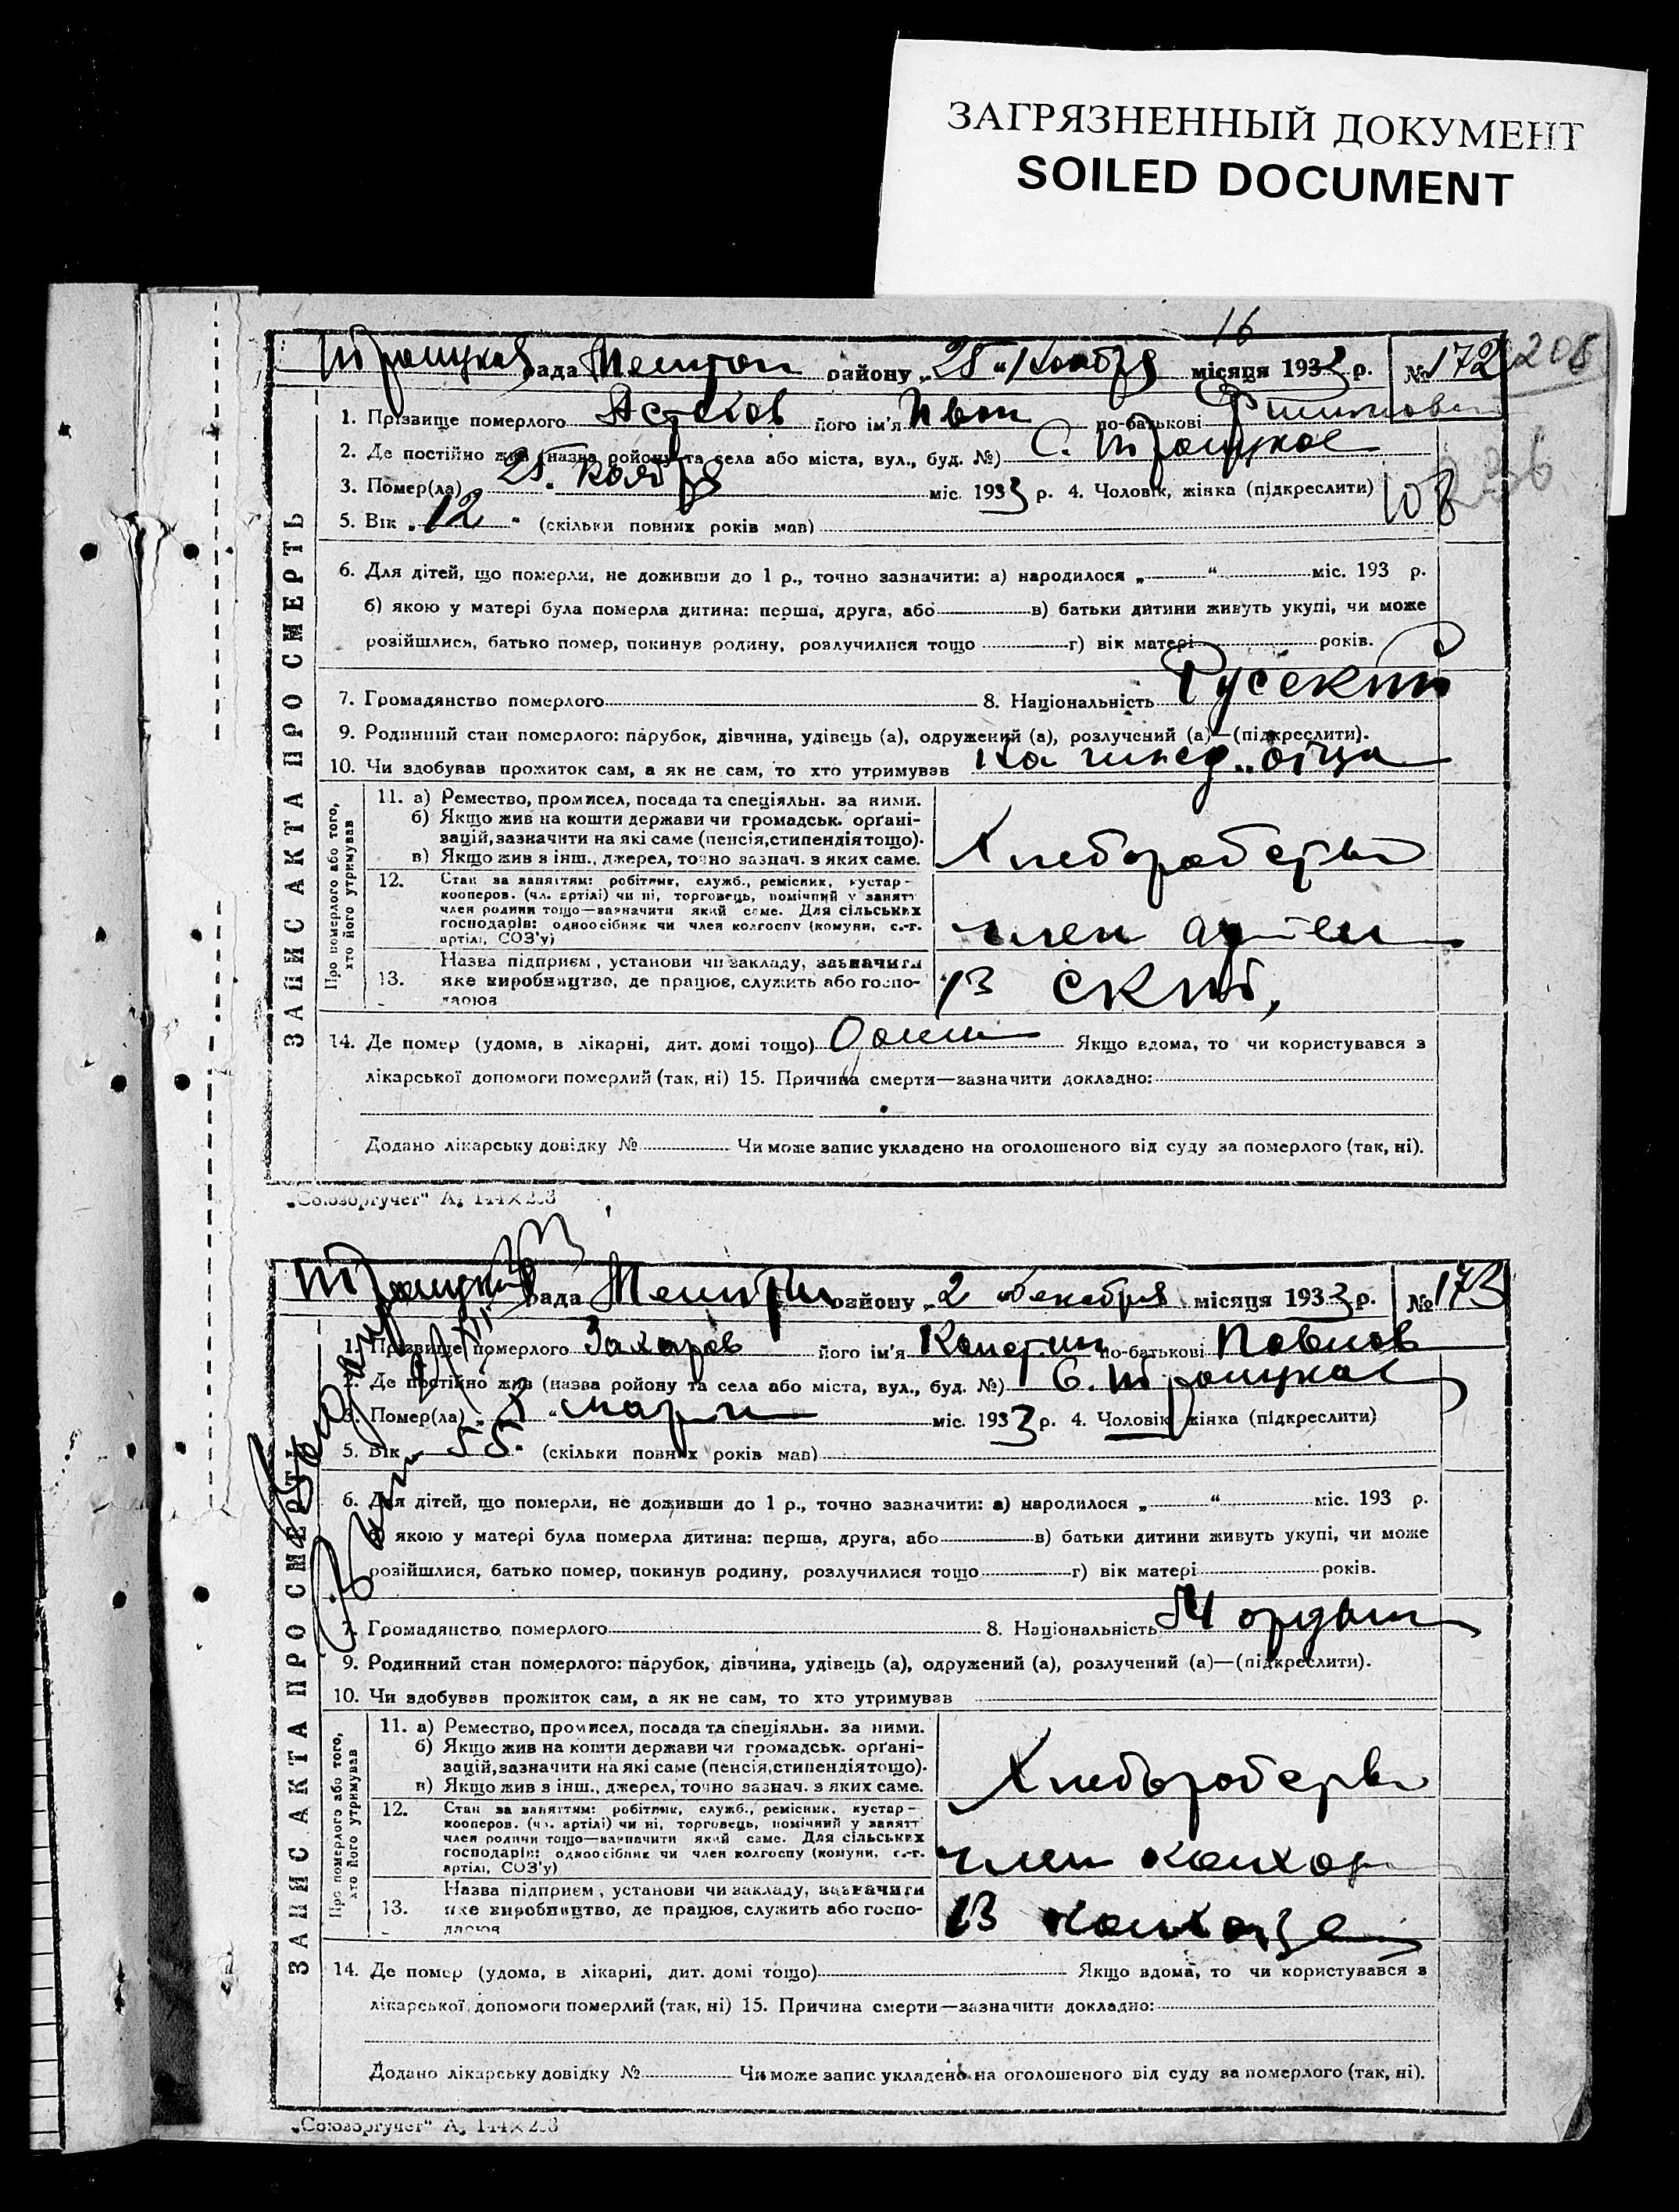 ЗАГРЯЗНЕННЫЙ ДОКУМЕНТ
SOILED DOCUMENT
16
Троицкая рада району „25“ Ноября місяця 1933 р. № 172 208
1. Прізвище померлого його ім'я Иван по-батькові
2. Де постійно жив (назва району та села або міста, вул., буд. №) С. Троицкое
236
3. Помер(ла) 25. ноября міс. 1933 р. 4. Чоловік, жінка (підкреслити) 108
5. Вік „12“ (скільки повних років мав)
6. Для дітей, що померли, не доживши до 1 р., точно зазначити: а) народилося „ “ міс. 193 р.
б) якою у матері була померла дитина: перша, друга, або в) батьки дитини живуть укупі, чи може
розійшлися, батько помер, покинув родину, розлучилися тощо г) вік матері років.
7. Громадянство померлого 8. Національність Русский
9. Родинний стан померлого: парубок, дівчина, удівець (а), одружений (а), розлучений (а)—(підкреслити).
10. Чи здобував прожиток сам, а як не сам, то хто утримував На ижед. отца
ЗАПИС АКТА ПРО СМЕРТЬ
Про померлого або того, хто його утримував
11. а) Ремество, промисел, посада та спеціяльн. за ними.
б) Якщо жив на кошти держави чи громадськ. орґані-
зацій, зазначити на які саме (пенсія, стипендія тощо).
в) Якщо жив з інш. джерел, точно зазнач. з яких саме.
Хлеборобство
12. Стан за заняттям: робітник, служб., ремісник, кустар-
кооперов. (чл. артілі) чи ні, торговець, помічний у занятт
член родини тощо—зазначити який саме. Для сільських
господарів: одноосібник чи член колгоспу (комуни, с.-г.
артілі, СОЗ'у)
член артели
13. Назва підприєм, установи чи закладу, зазначити
яке виробництво, де працює, служить або госпо-
дарює
В
14. Де помер (удома, в лікарні, дит. домі тощо) Дома Якщо вдома, то чи користувався з
лікарської допомоги померлий (так, ні) 15. Причина смерти—зазначити докладно:
Додано лікарську довідку № Чи може запис укладено на оголошеного від суду за померлого (так, ні).
„Союзоргучет“ А₅ 144×203
Троицкая рада району „2“ декабря місяця 1933 р. № 173
1. Прізвище померлого Захаров його ім'я по-батькові Павлов
2. Де постійно жив (назва району та села або міста, вул., буд. №) С. Троицкое
3. Помер(ла) марта міс. 1933 р. 4. Чоловік, жінка (підкреслити)
5. Вік 55 (скільки повних років мав)
6. Для дітей, що померли, не доживши до 1 р., точно зазначити: а) народилося „ “ міс. 193 р.
б) якою у матері була померла дитина: перша, друга, або в) батьки дитини живуть укупі, чи може
розійшлися, батько помер, покинув родину, розлучилися тощо г) вік матері років.
7. Громадянство померлого 8. Національність
9. Родинний стан померлого: парубок, дівчина, удівець (а), одружений (а), розлучений (а)—(підкреслити).
10. Чи здобував прожиток сам, а як не сам, то хто утримував
ЗАПИС АКТА ПРО СМЕРТЬ
Про померлого або того, хто його утримував
11. а) Ремество, промисел, посада та спеціяльн. за ними.
б) Якщо жив на кошти держави чи громадськ. орґані-
зацій, зазначити на які саме (пенсія, стипендія тощо).
в) Якщо жив з інш. джерел, точно зазнач. з яких саме.
Хлеборобство
12. Стан за заняттям: робітник, служб., ремісник, кустар-
кооперов. (чл. артілі) чи ні, торговець, помічний у занятт
член родини тощо—зазначити який саме. Для сільських
господарів: одноосібник чи член колгоспу (комуни, с.-г.
артілі, СОЗ'у)
член колхоз
13. Назва підприєм, установи чи закладу, зазначити
яке виробництво, де працює, служить або госпо-
дарює
В колхозе
14. Де помер (удома, в лікарні, дит. домі тощо) Якщо вдома, то чи користувався з
лікарської допомоги померлий (так, ні) 15. Причина смерти—зазначити докладно:
Додано лікарську довідку № Чи може запис укладено на оголошеного від суду за померлого (так, ні).
„Союзоргучет“ А₅ 144×203